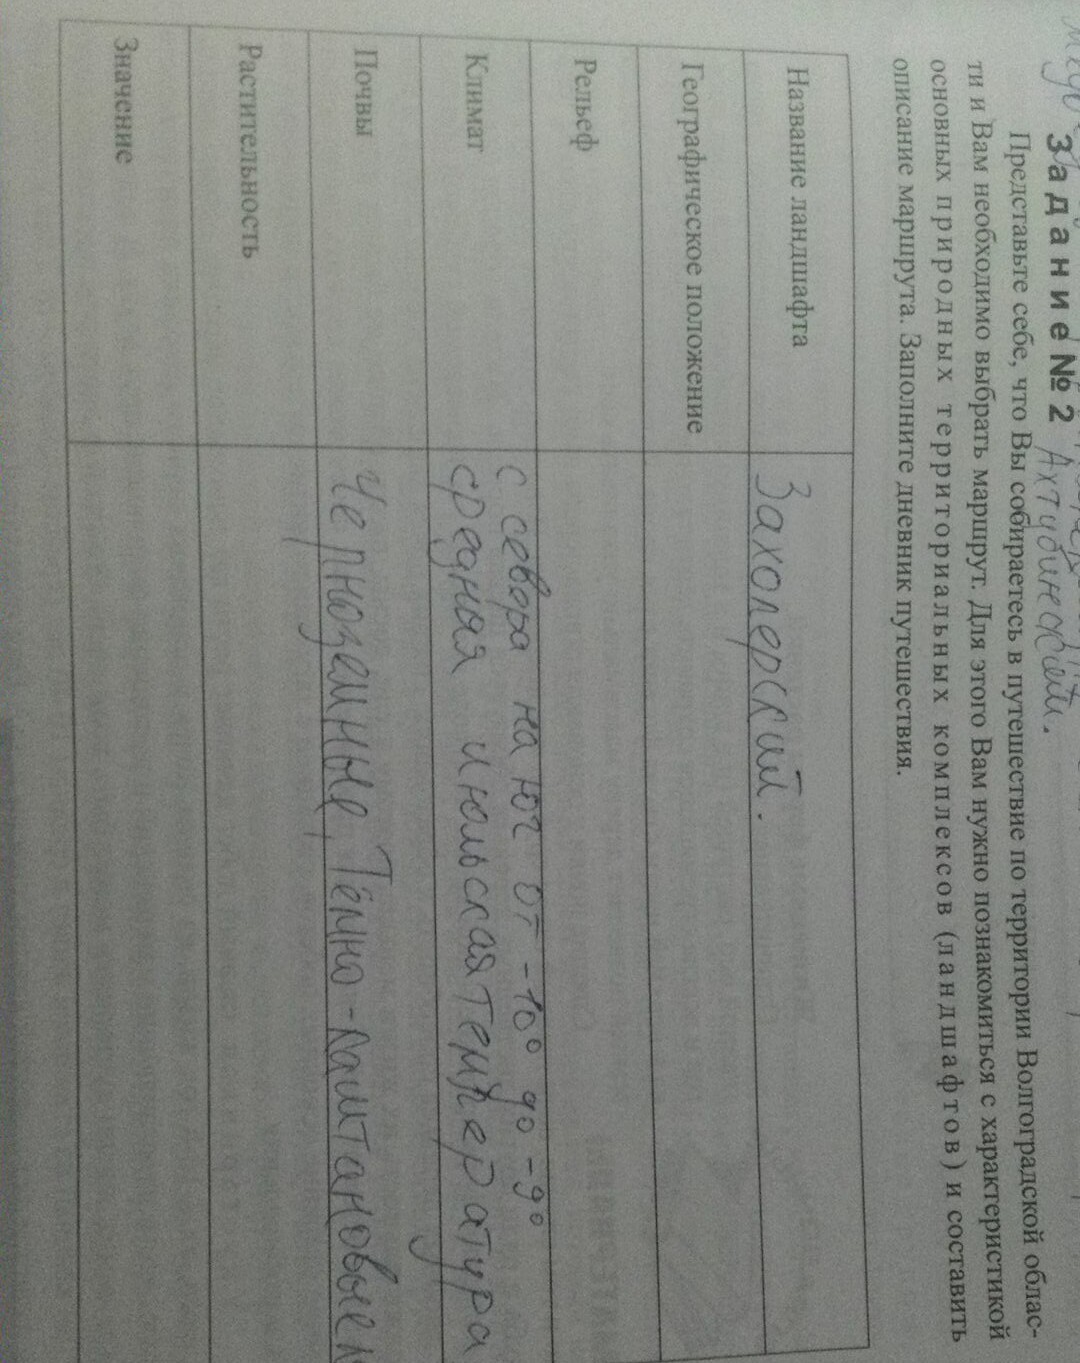 Задание № 2
Ахтубинский.
Представьте себе, что Вы собираетесь в путешествие по территории Волгоградской облас-
ти и Вам необходимо выбрать маршрут. Для этого Вам нужно познакомиться с характеристикой
основных природных территориальных комплексов (ландшафтов) и составить
описание маршрута. Заполните дневник путешествия.
Название ландшафта
Захоперский.
Географическое положение
Рельеф
Климат
с севера на юг от -10° до -9°
средняя июльская температура
Почвы
Чернозёмные, Тёмно-каштановые
Растительность
Значение